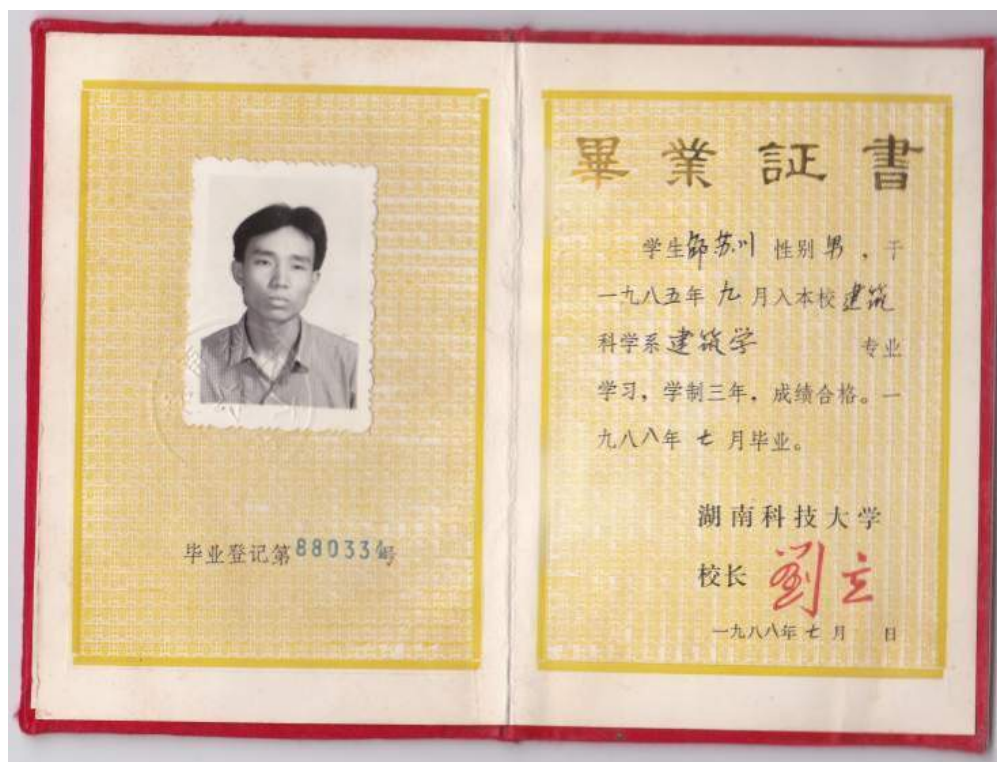 毕业登记第88033号
畢業証書
学生邹苏川 性别男，于
一九八五年九月入本校建筑
科学系建筑学 专业
学习，学制三年，成绩合格。一
九八八年七月毕业。
湖南科技大学
校长 劉立
一九八八年七月 日